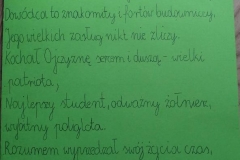 Dowódca to znakomity i fortów budowniczy,
Jego wielkich zasług nikt nie zliczy.
Kochał Ojczyznę sercem i duszą - wielki
patriota,
Najlepszy student, odważny żołnierz,
wybitny poliglota.
Rozumem wyprzedzał swój zacia czas,